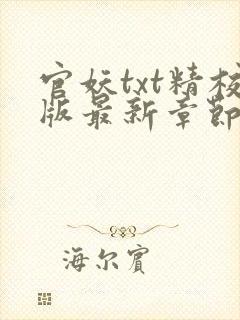 官妖txt精校
版最新章節
海尔賓